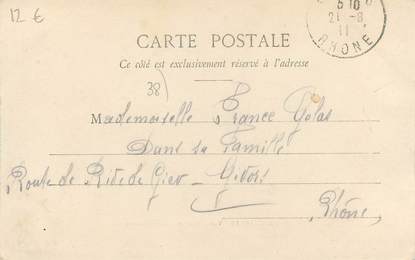 12 €
5 10
21 - 8
11
RHONE
CARTE POSTALE
Ce côté est exclusivement réservé à l'adresse
38)
Mademoiselle France
Dans sa Famille
Route de Rive de Gier - Givors
Rhône,